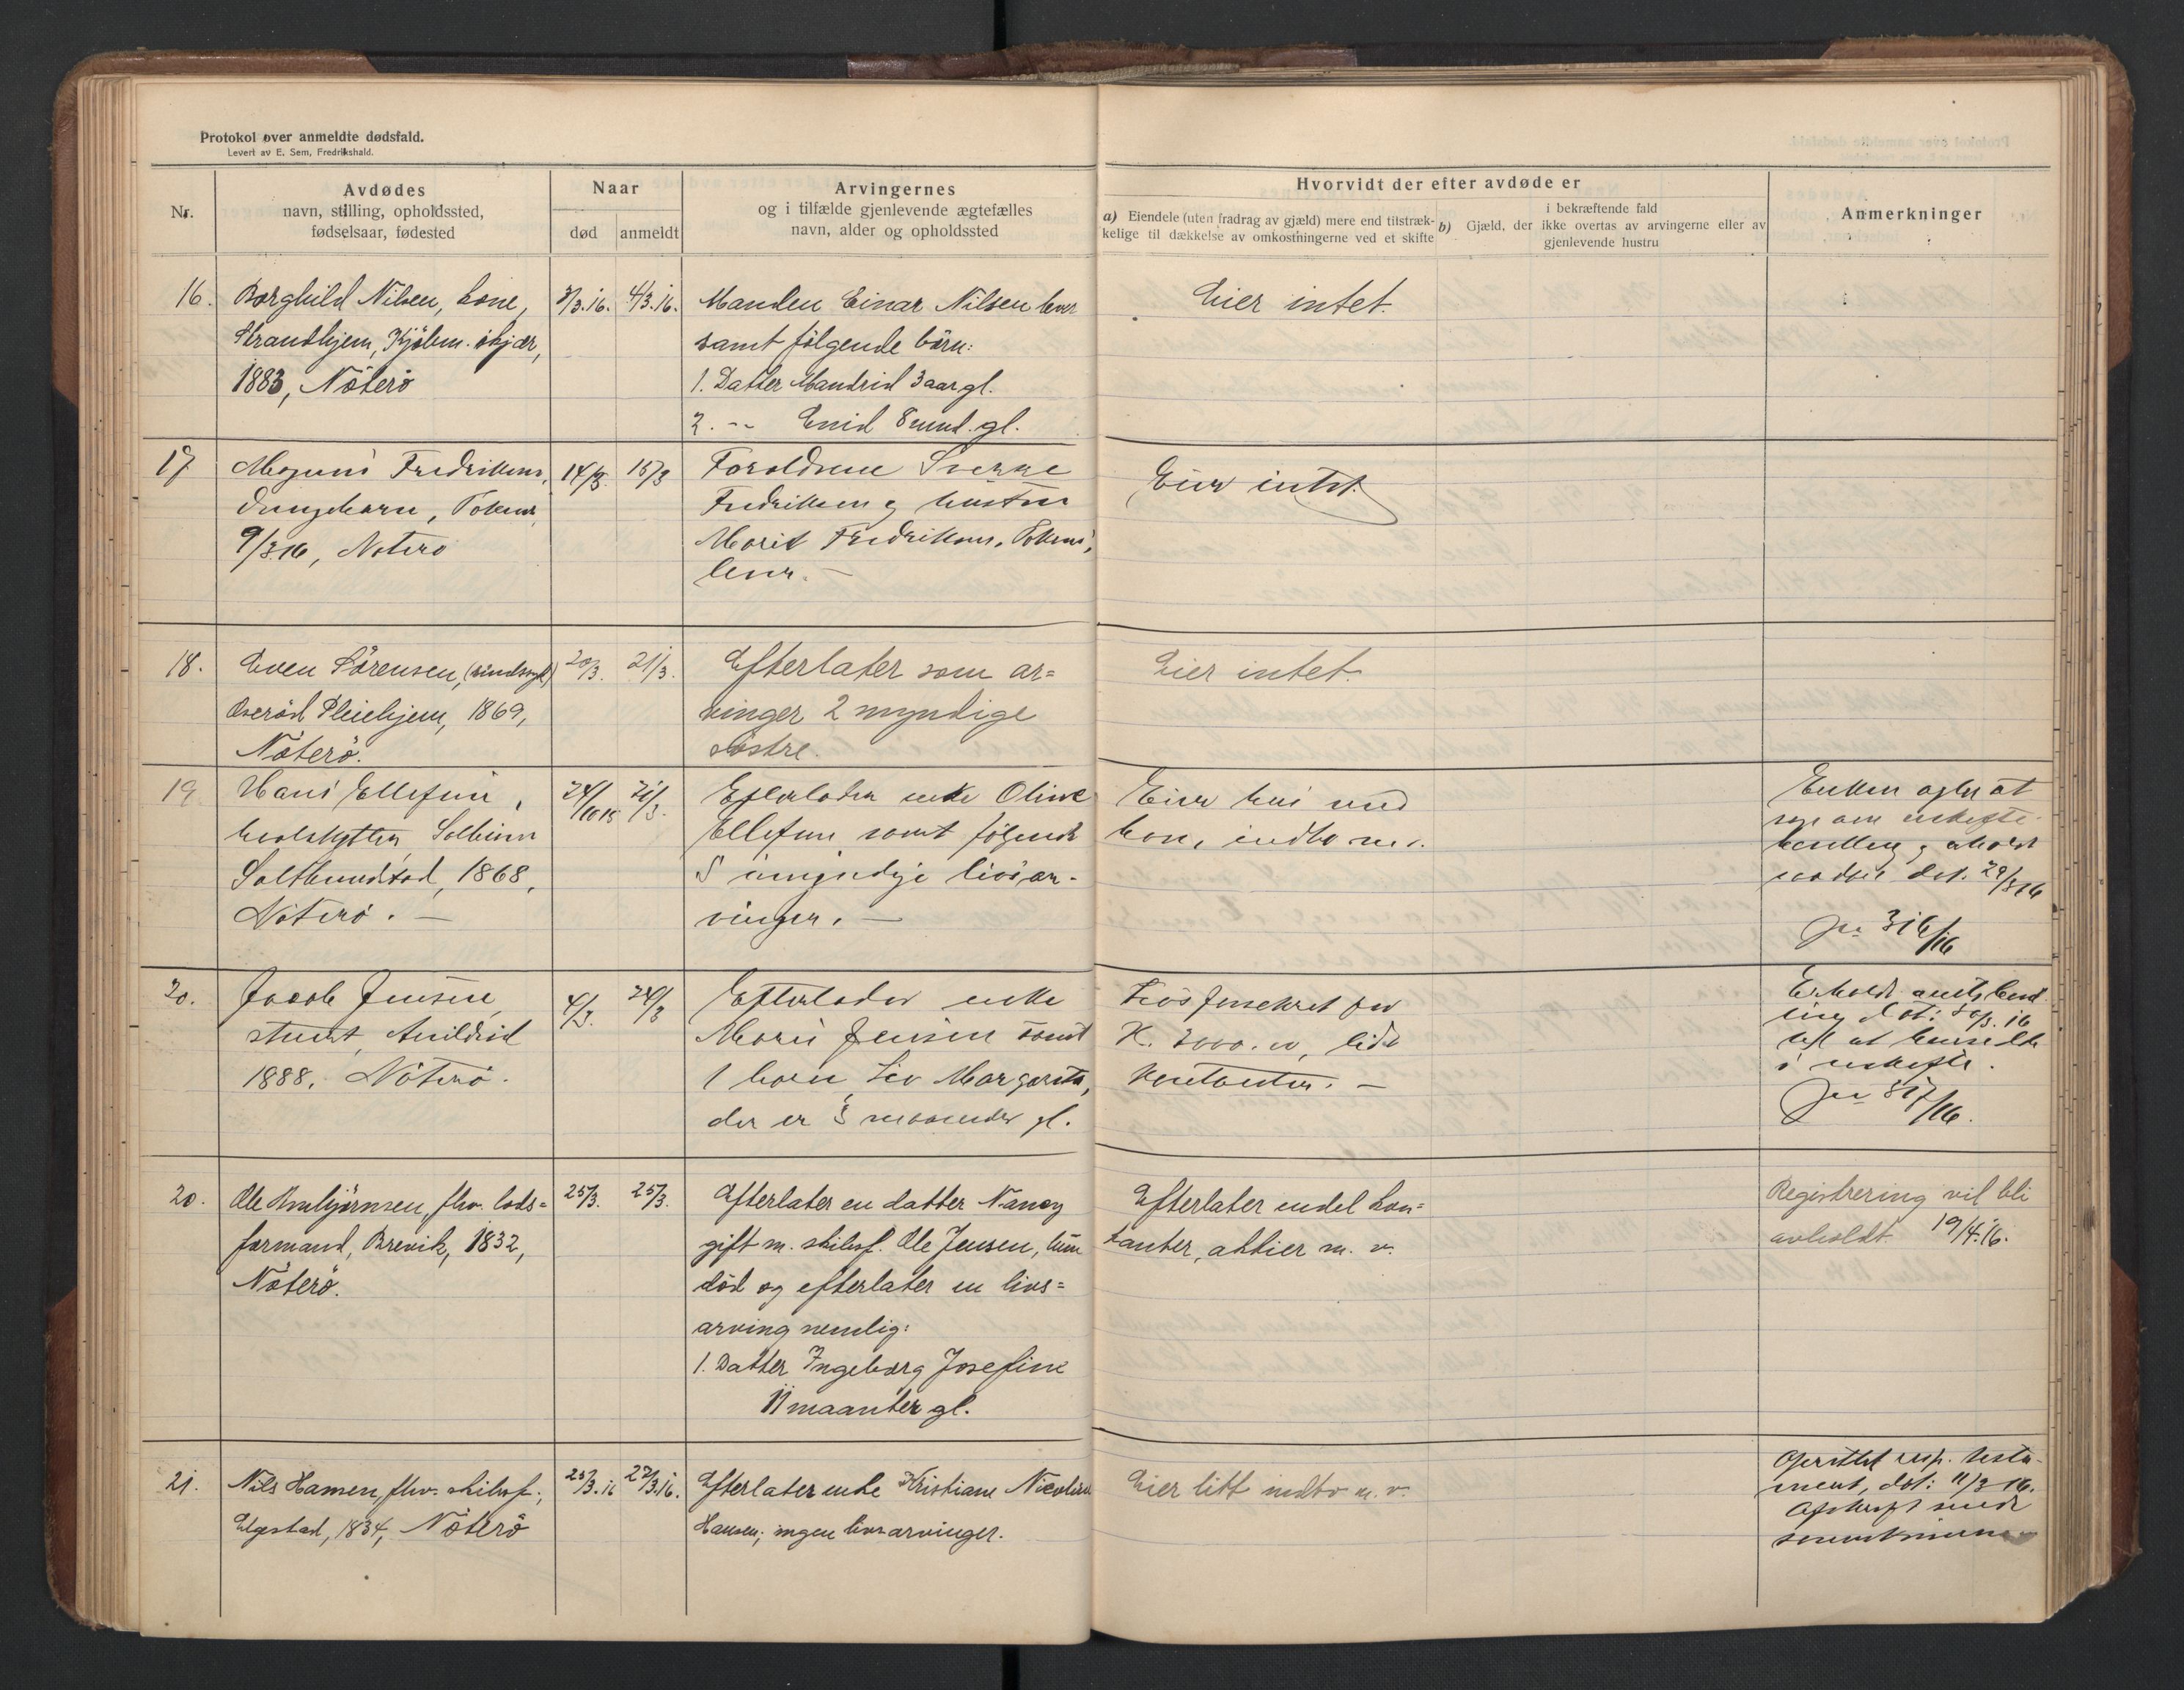 Protokol over anmeldte dødsfald.
Levert av E. Sem, Fredrikshald.
Nr.
Avdødes
navn, stilling, opholdssted,
fødselsaar, fødested
Naar
død
anmeldt
Arvingernes
og i tilfælde gjenlevende ægtefælles
navn, alder og opholdssted
Hvorvidt der efter avdøde er
a) Eiendele (uten fradrag av gjæld) mere end tilstræk-
kelige til dækkelse av omkostningerne ved et skifte
b) Gjæld, der
i bekræftende fald
ikke overtas av arvingerne eller av
gjenlevende hustru
Anmerkninger
16.
Borghild Nilsen, kone,
Strandhjem,
1883, Nøterö
3/3.16.
4/3.16.
Manden Einar Nilsen lever
samt følgende børn:
1. Datter Mandrid 3 aar gl.
2. -- Enid 8 mnd. gl.
Eier intet.
17
Fredriksens
9/3.16, Noterö
14/3.
15/3
Forældrene Sverre
Fredriksen og hustru
Marit Fredriksen,
lever. —
Eier intet.
18.
Even Sörensen, (sindssyk)
Oserød Pleiehjem, 1869,
Nöterö.
20/3.
21/3.
Efterlater som ar=
vinger 2 myndige
søstre.
Eier intet.
19
Hans Ellefsen,
hvalskytter, Solheim
1868,
Nöterö. —
24/10 15
21/3.
Efterlader enke Olive
Ellefsen samt følgende
5 umyndige livsar-
vinger. —
Eier hus med
indbo m.v.
Enken agter at
29/3 16
Jn 316/16
20.
Jacob Jensen
1888. Nöterö.
4/3.
24/3
Efterlader enke
Marie Jensen samt
1 barn, Liv Margareta,
der er 3 maaneder gl.
Livsforsikret for
K. 2000.00, lidt
kontanter. —
i uskifte.
Jn 317/16.
20.
Ole Annbjørnsen, fhv. lods=
formand, Brevik, 1832,
Nöterö.
25/3.
25/3.
Efterlater en datter Nancy
gift m. skibsf. Ole Jensen, hun
död og efterlater en livs=
arving nemlig:
1. Datter Ingeborg Josefine
11 maanter gl.
Efterlater endel kon=
tanter, aktier m. v.
Registrering vil bli
avholdt 19/4.16.
21.
Nils Hansen, fhv. skibsf.,
Elgestad, 1834, Nöterö
25/3.16
27/3.16.
Efterlater enke Kristiane Nicoline
Hansen; ingen livsarvinger.
Eier litt indbo m. v.
Oprettet resp. testa-
ment, dat: 11/3 16.